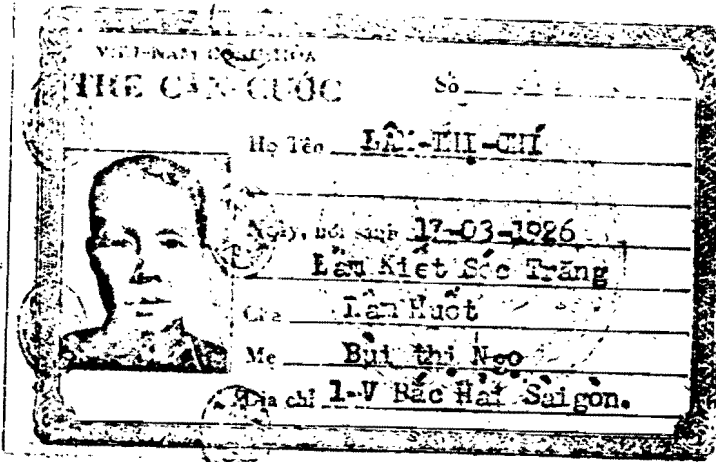 VIỆT-NAM CỘNG-HÒA
THẺ CĂN-CUỚC
Số
Họ Tên LÂM-THỊ-CHÍ
Ngày, nơi sanh 17-03-1926
Kiết Sóc Trăng
Cha Huốt
Mẹ Bùi thị Ngọ
Địa chỉ 1-V Bắc Hải Saigòn.